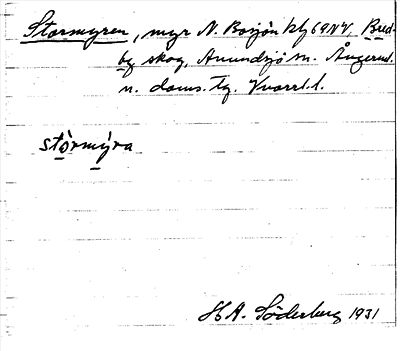 Stormyren, myr N. Bosjön kbl 69NV, Bred-
by skog, Anundsjö sn. Ångerml.
n. doms. Tg.
stòrmýra
H A. Söderberg 1931